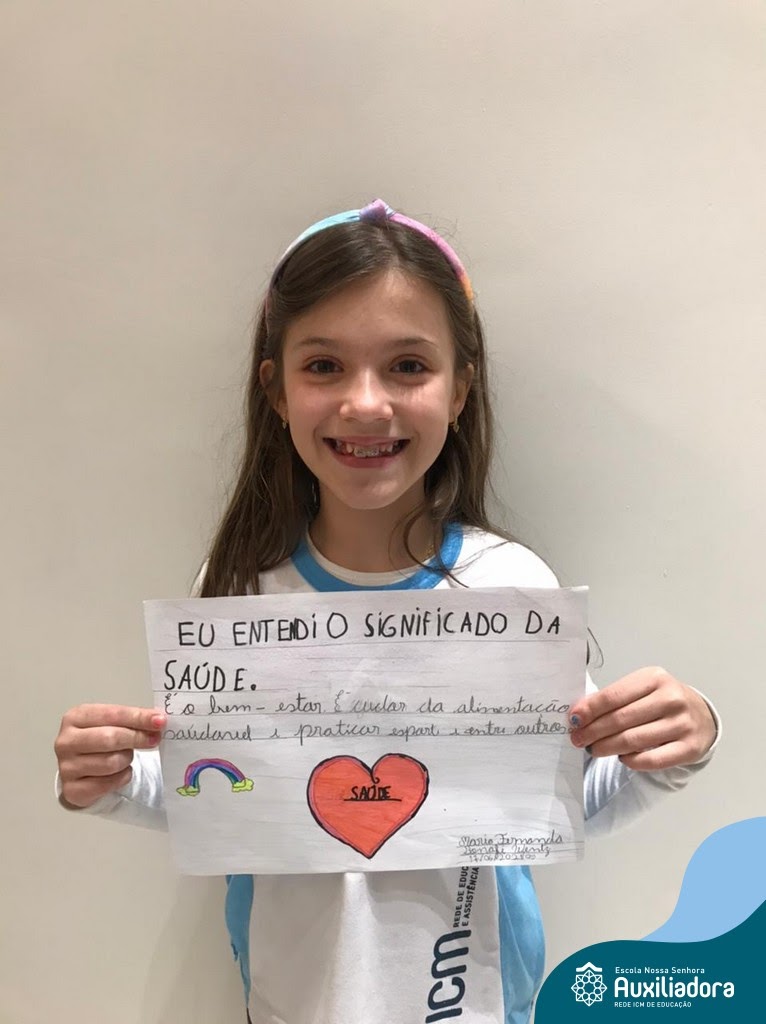 EU ENTENDI O SIGNIFICADO DA
SAÚDE.
É o bem-estar. É cuidar da alimentação
saudavel e praticar esport e entre outros
SAÚDE
Maria Fernanda
REDE DE EDUC
E ASSISTÊNCIA
ICM
Escola Nossa Senhora
Auxiliadora
REDE ICM DE EDUCAÇÃO